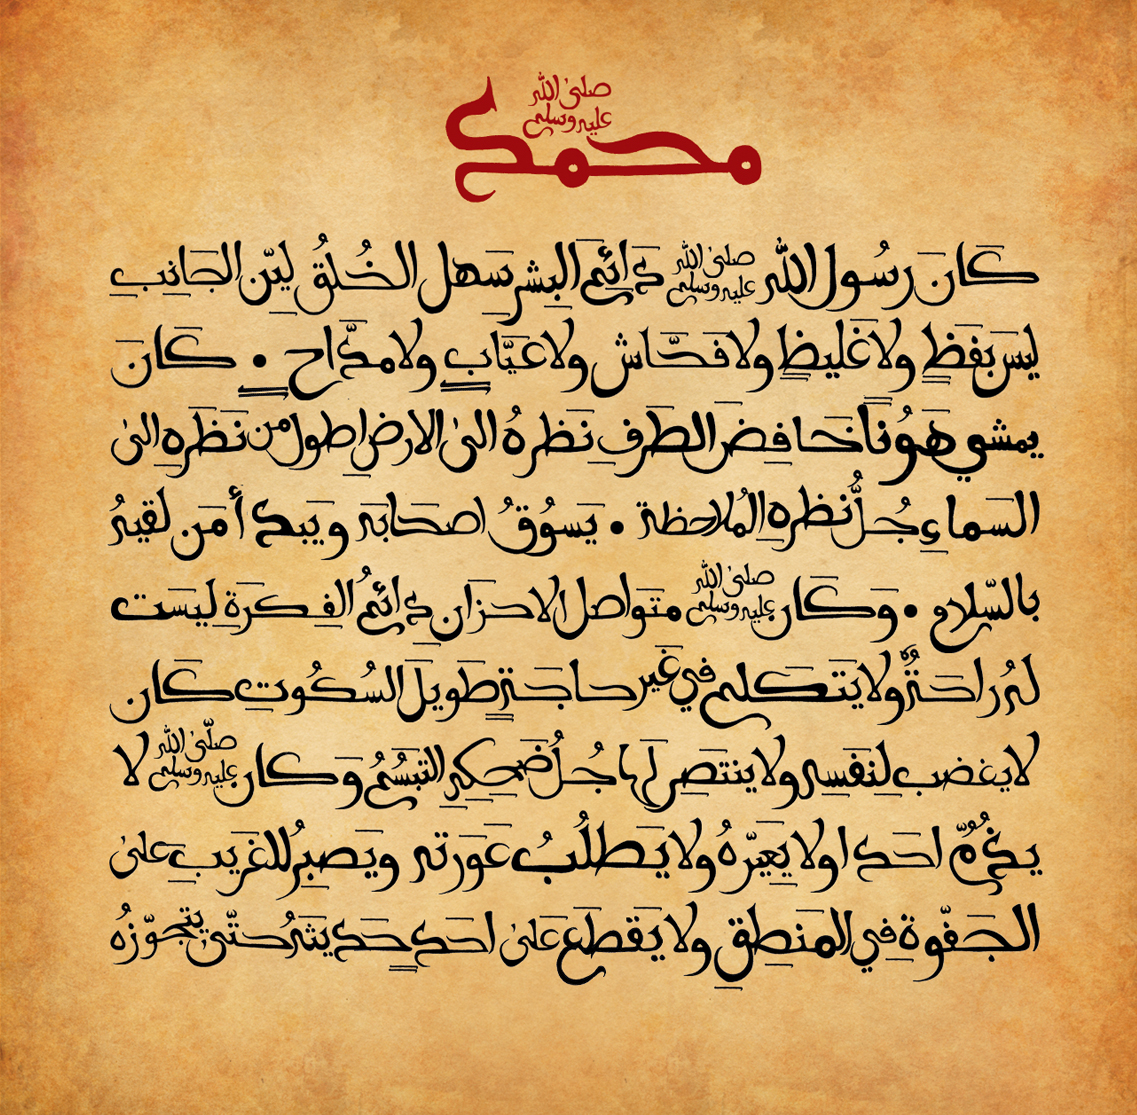 محمد صلى الله عليه وسلم
كَانَ رسُول الله صلى الله عليه وسلم دَائِم البِشر سَهل الخُلقُ ليِّن الجَانِبِ
ليسَ بفَظٍ ولاَ غَليظٍ ولا فَحَّاش ولا عَيَّابٍ ولا مدَّاحٍ • كَانَ
يمشي هَوُناً خَافِضَ الطَرفِ نَظره إلى الارضِ اطول من نَظَرِه الى
السَماءِ جُلُّ نظرِه المُلاحظة • يَسوُقُ اصحَابَه ويَبدأ مَن لقيهُ
بالسّلام • وَكَان صلى الله عليه وسلم متَواصِل الاحزَان دِائمُ الفِكرَة ليسَت
لَهُ راحَةٌ ولا يَتَكَلم في غَير حاجَةٍ طَويلَ السُكُوتِ كَان
لا يغضب لِنَفسِه ولا ينتَصِر لَها جُلُ ضَحِكِهِ التبَسُمُ وَكَان صلّى الله عليه وسلم لا
يذُمُّ احَدَا ولا يَعِيّرهُ ولا يَطلُبُ عَورَته ويَصبِرُ للغَريبِ عَلىٰ
الجَفّوة فِي المَنطِقِ ولا يَقطَع عَلىٰ احَدٍ حَدَيثَهُ حتّى يتجَوّزهُ